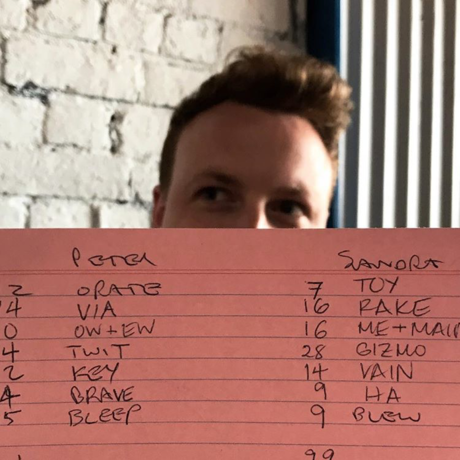 PETER SANDRA
2 ORATE 7 TOY
4 VIA 16 RAKE
0 OW+EW 16 ME+
4 TWIT 28 GIZMO
2 KEY 14 VAIN
4 BRAVE 9 HA
5 BLEEP 9 BLEW
99